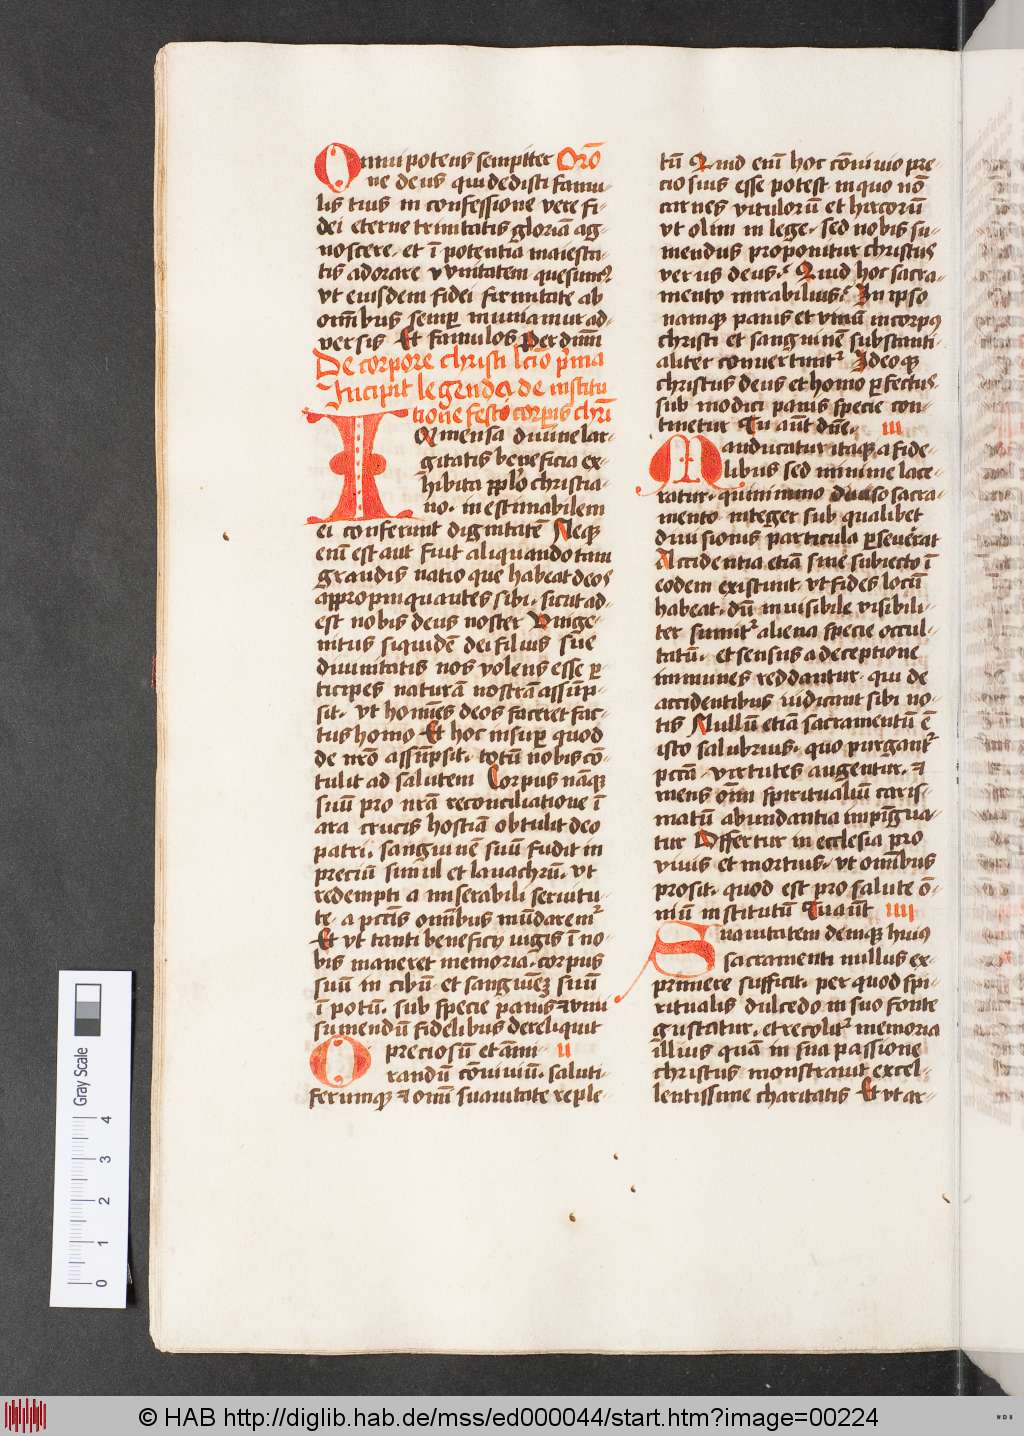 Omnipotens sempiter Orō
ne deus qui dedisti famu-
lis tuis in confessione vere fi-
dei eterne trinitatis gloriā ag-
noscere. et ī potentia maiesta-
tis adorare vnitatem quesumꝰ
vt eiusdem fidei firmitate ab
om̄ibus semꝑ muniamur ad-
versis Et famulos Per dn̄m
De corpore christi lctio pͥma
Incipit legenda de institu
tione festi corporis chri
Inmensa diuine lar-
gitatis beneficia ex-
hibita pplo christia-
no. inestimabilem
ei conferunt dignitatē Neqꝫ
enī est aut fiuit aliquando tam
grandis natio que habeat deos
appropinquantes sibi. sicut ad-
est nobis deus noster Vnige-
nitus siquidē dei filius sue
diuinitatis nos volens esse ꝑ
ticipes naturā nostrā assūp-
sit. vt homīes deos faceret fac-
tus homo Et hoc insuꝑ quod
de nrō assūpsit. totū nobis cō-
tulit ad salutem Corpus nāqꝫ
suū pro nrā reconciliatione ī
ara crucis hostiā obtulit deo
patri. sanguinē suū fudit in
preciū simul et lauachrū. vt
redempti a miserabili seruitu-
te. a pctīs om̄ibus mūdaremꝛ
Et vt tanti beneficij iugis ī no-
bis maneret memoria. corpus
suū in cibū et sanguinēꝫ suū
ī potū. sub specie panis ⁊ vini
sumendū fidelibus dereliquit
O preciosū et ām̄i- ii
randū cōviuiū. saluti-
ferumqꝫ ⁊ omī suauitate reple-
tū Quid enī hoc cōviuio pre-
ciosius esse potest in quo nō
carnes vitulorū et hircorū
vt olim in lege. sed nobis su-
mendus proponitur christus
verus deus. Quid hoc sacra-
mento mirabilius. In ipso
namqꝫ panis et vinū in corpꝰ
christi et sanguinē substanti-
aliter convertuntꝛ Ideoqꝫ
christus deus et homo ꝑfectus.
sub modici panis specie con-
tinetur Tu aut dn̄e. iii
Manducatur itaqꝫ a fide-
libus sed minime lace-
ratur. quinimmo diuiso sacra-
mento integer sub qualibet
diuisionis particula ꝑseuerat
Accidentia etiā sine subiecto ī
eodem existunt. vt fides locū
habeat. dū invisibile visibili-
ter sumitꝛ aliena specie occul-
tatū. et sensus a deceptione
immunes reddantur. qui de
accidentibus iudicant sibi no-
tis Nullū etiā sacramentū ē
isto salubrius. quo purgantꝛ
pctā. virtutes augentur. ⁊
mens omī spiritualiū caris-
matū abundantia impīgua-
tur Offertur in ecclesia pro
viuis et mortuis. vt om̄ibus
prosit. quod est pro salute ō-
niū institutū Tu aūt iiii
Suauitatem deniqꝫ huiꝰ
sacramenti nullus ex-
primere sufficit. per quod spi-
ritualis dulcedo in suo fonte
gustatur. et recolitꝛ memoria
illius quā in sua passione
christus monstrauit excel-
lentissime charitatis Et vt ar-
Gray Scale
4
3
2
1
0
© HAB http://diglib.hab.de/mss/ed000044/start.htm?image=00224